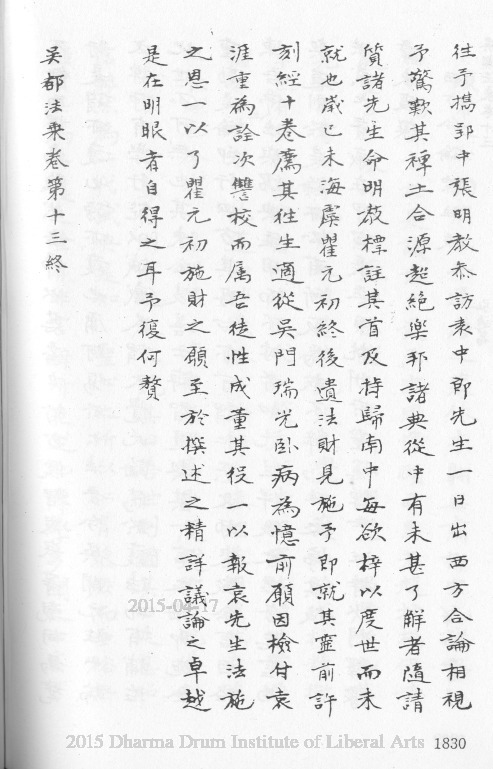 往予攜郢中張明教參訪袁中郎先生一日出西方合論相視
予驚歎其禪土合源超絶樂邦諸典從中有未甚了解者隨請
質諸先生命明教標註其首及持歸南中每欲梓以度世而未
就也歲己未海虞瞿元初終後遺法財見施予即就其靈前許
刻經十卷薦其往生適從吳門瑞光臥病為憶前願因檢付袁
涯重為詮次讐校而属吾徒性成董其役一以報袁先生法施
之恩一以了瞿元初施財之願至於撰述之精詳議論之卓越
是在明眼者自得之耳予復何贅
吴都法乘卷第十三終
2015-04-17
2015 Dharma Drum Institute of Liberal Arts
1830